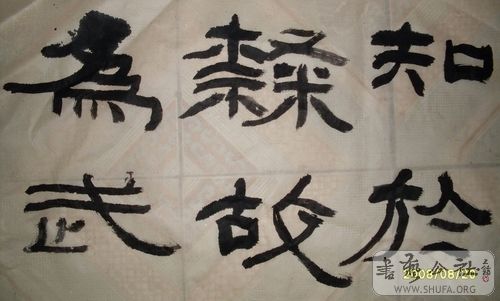 知於
隸故
為武
2008/08/20
書藝公社
WWW.SHUFA.ORG